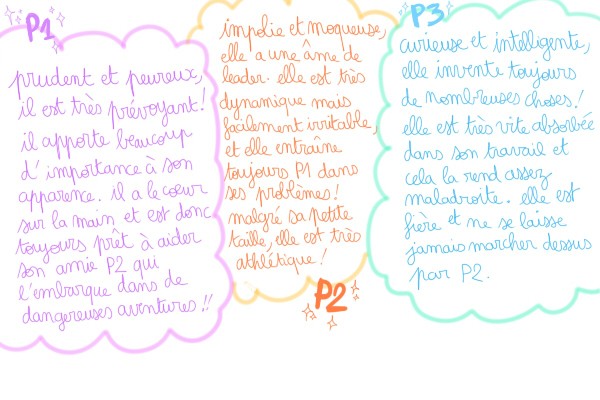 P1
prudent et peureux,
il est très prévoyant!
il apporte beaucoup
d'importance à son
apparence. il a le coeur
sur la main et est donc
toujours prêt à aider
son amie P2 qui
l'embarque dans de
dangereuses aventures!!
impolie et moqueuse,
elle a une âme de
leader. elle est très
dynamique mais
facilement irritable,
et elle entraîne
toujours P1 dans
ses problèmes!
malgré sa petite
taille, elle est très
athlétique!
P2
P3
curieuse et intelligente,
elle invente toujours
de nombreuses choses!
elle est très vite absorbée
dans son travail et
cela la rend assez
maladroite. elle est
fière et ne se laisse
jamais marcher dessus
par P2.